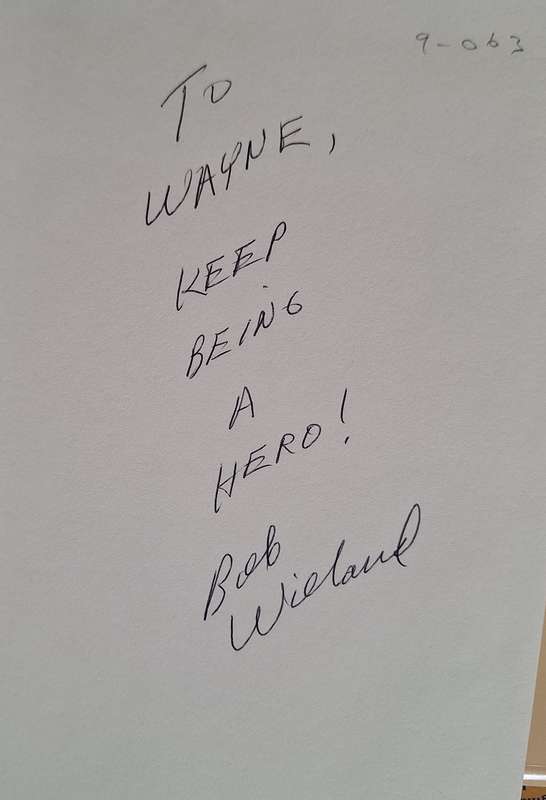 9-063
To
WAYNE,
KEEP
BEING
A
HERO!
Bob
Wieland